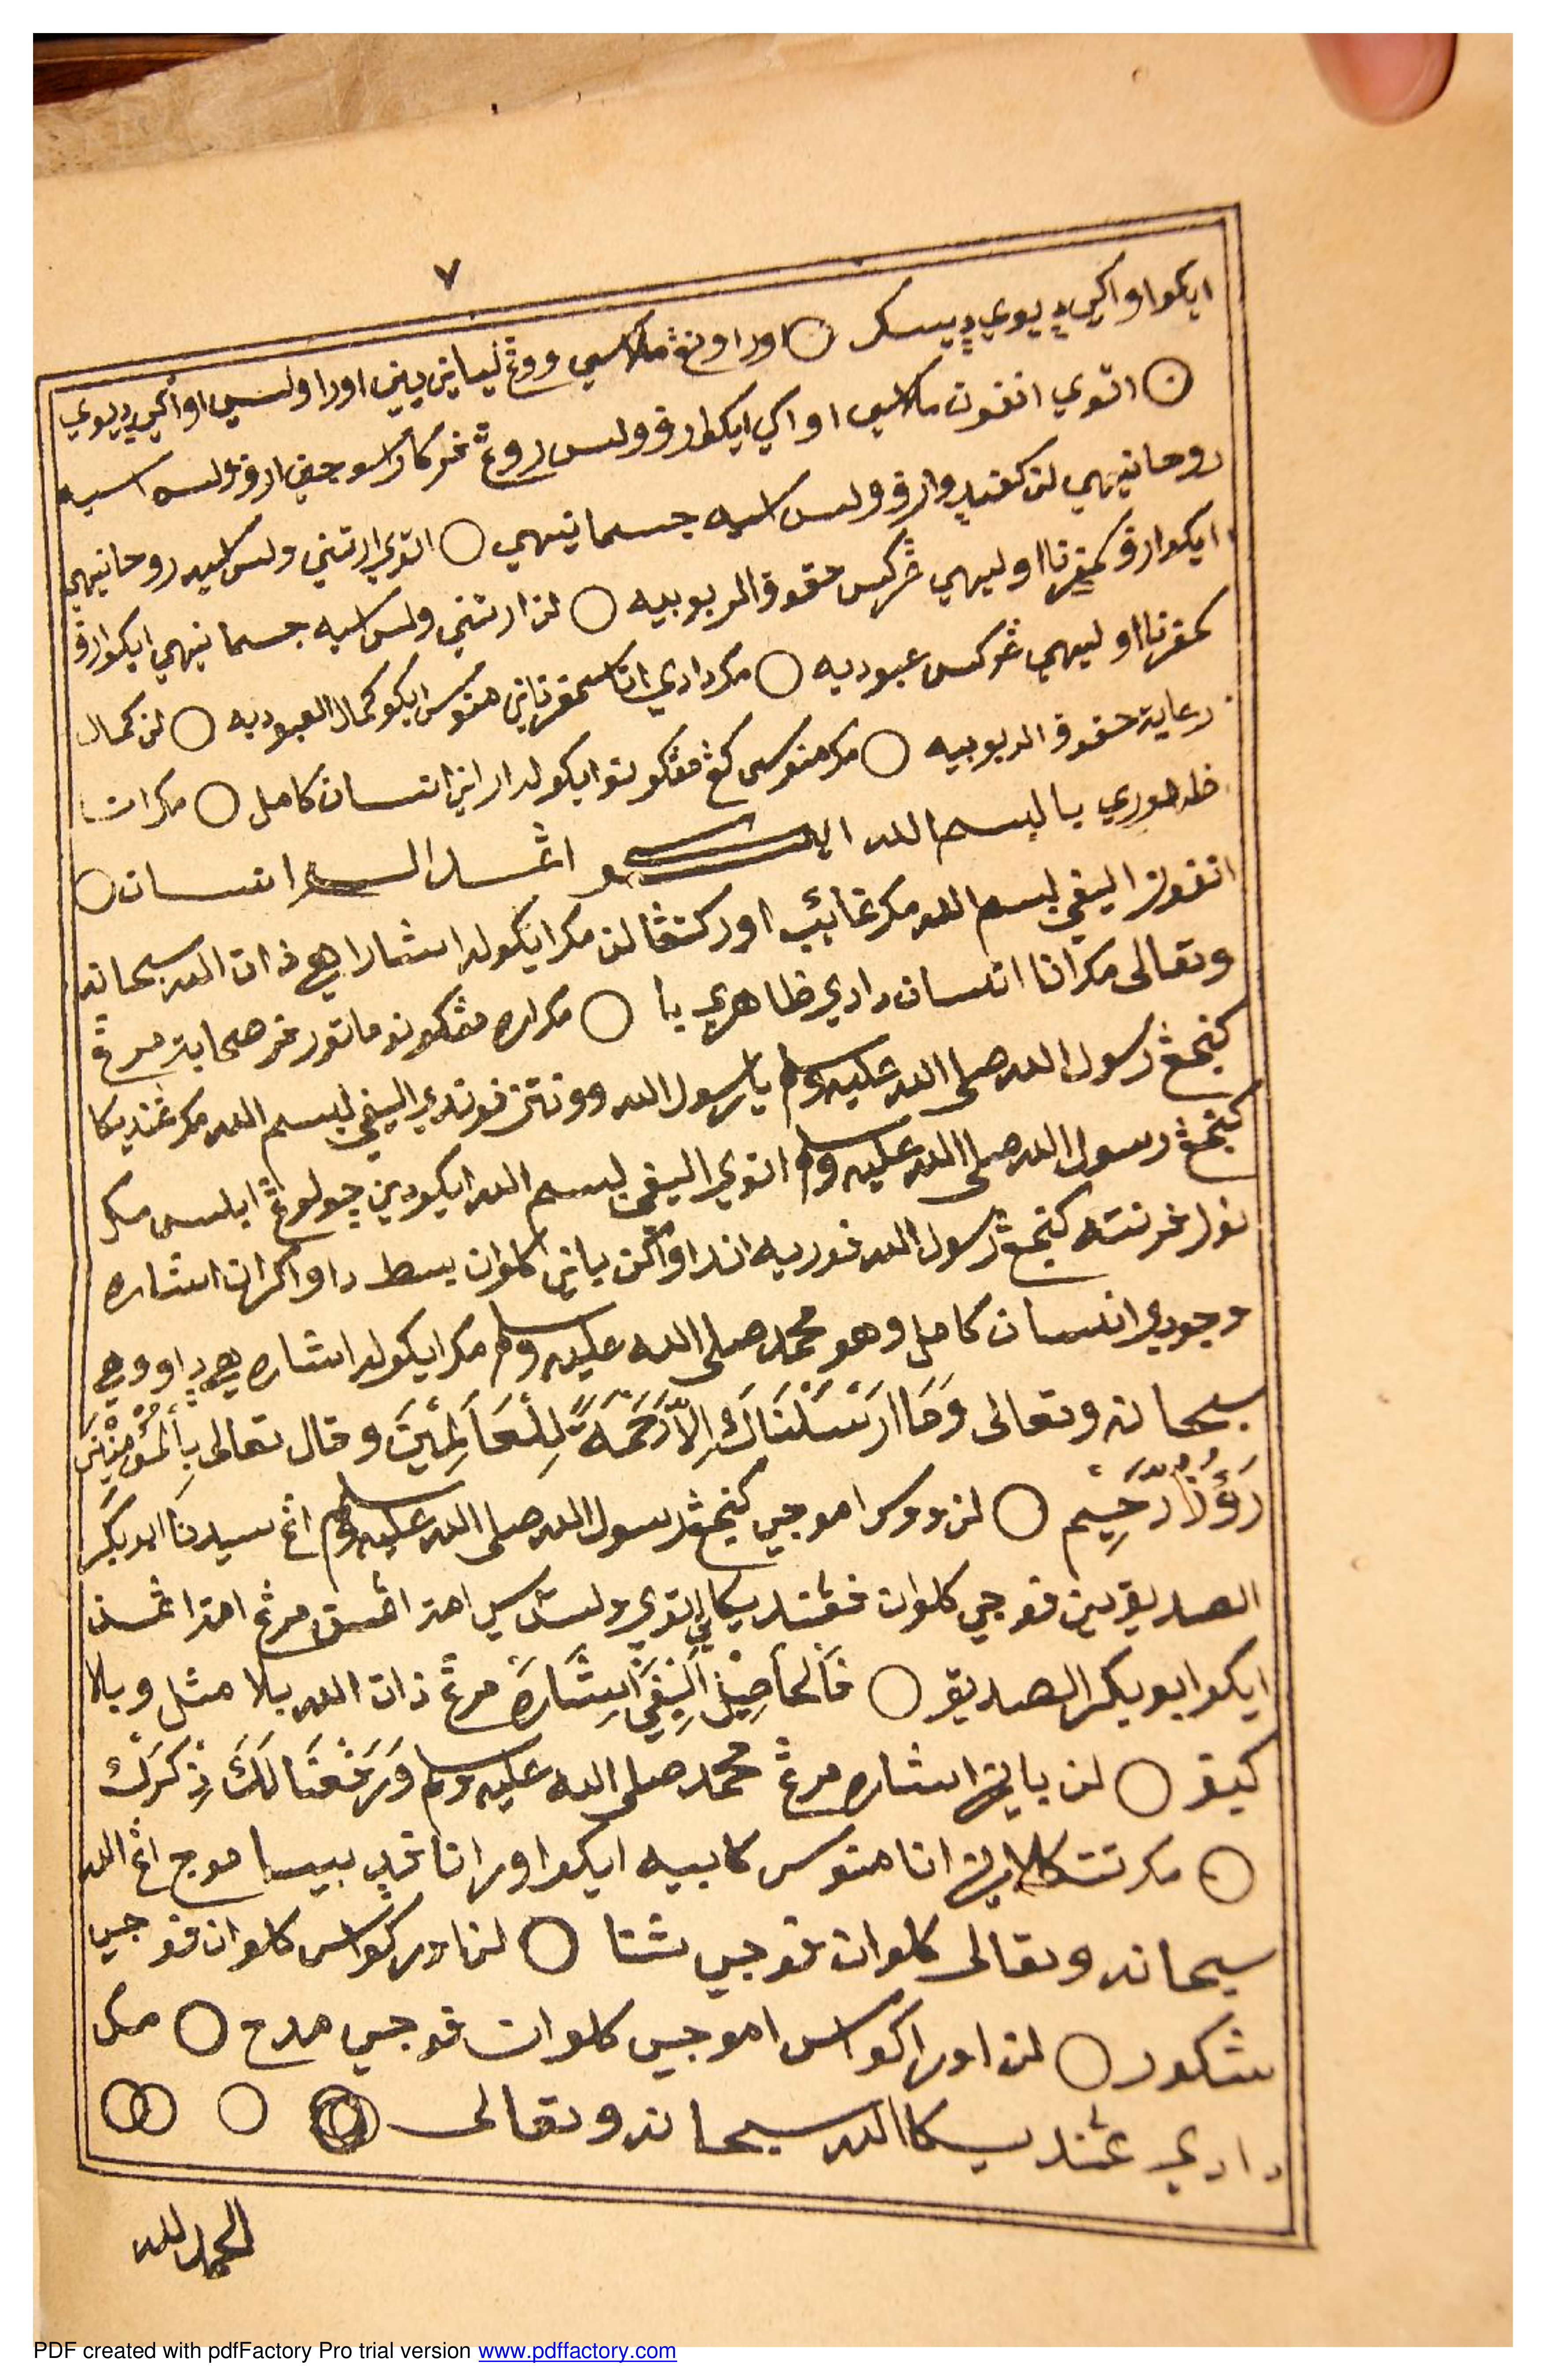 ٧
ايكوا واكي ديوي ديسكر ○ اورا ونڠ ملاسي ووڠ ليياني يني اورا ولسي اواكي ديوي
○ اتوي انفون ملاسي اواكي ايكوارف ولس روغ فركارا سوجيني ارف ولسه اسيه
روحانيهي لن كفيدوارف ولس اسيه جسمانيهي ○ اتوي ارتيني ولس اسيه روحانيهي
ايكوارف كمفرنا اوليهي ڠركس حقوق الربوبيه ○ لن ارتيني ولس اسيه جسمانيهي ايكوارف
كمفرنا اوليهي ڠركس عبوديه ○ مكر دادي انا سمفرناني منوس ايكو كمال العبوديه ○ لن كمال
رعاية حقوق الربوبيه ○ مكر منوسى كڠ مڠكونو ايكولرارانن انسان كامل ○ مكرات
ظهوري با لبسم الله انسان ○
انفون اليفي لبسم الله مكر غائب اوركتڠا لن مكرايكولر اشارا هي ذات الله سبحانه
وتعالى مكر انا انسان دادي ظاهري با ○ مكراره مڠكونو ماتور فر صحابة مرڠ
كنجڠ رسول الله صلى الله عليه وسلم يا رسول الله وونتن فوندي اليفي لبسم الله مكر ڠنديكا
كنجڠ رسول الله صلى الله عليه وسلم اتوي اليفي لبسم الله ايكودين چولوڠ ابليس مكر
نولر فرنته كنجڠ رسول الله فوريه اندا واكن باني كلوان بسط داواكران اشاره
وجودي انسان كامل وهو محمد صلى الله عليه وسلم مكرايكولر اشاره هي داووهي
سبحانه وتعالى وَمَا اَرْسَلْنَاكَ اِلاَّ رَحْمَةً لِلْعَالَمِيْنَ وقال تعالى بِالْمُؤْمِنِيْنَ
رَؤُفٌ رَّحِيْم ○ لن ووس اموجي كنجڠ رسول الله صلى الله عليه وسلم اڠ سيدنا ابو بكر
الصديق ين فوجي كلوان فڠنديكاني اتوي ولس سي امة اڠسن مرڠ امة اڠسن
ايكو ابو بكر الصديق ○ فَالْحَاصِلُ اَلِيْفَيْ اِشَارَةَ مرڠ ذات الله بلا مثل وبلا
كيف ○ لن باين اشاره مرڠ محمد صلى الله عليه وسلم وَرَفَعْنَا لَكَ ذِكْرَكَ
○ مكر تتكلاين انا منوس كابيه ايكو اورانا ڠد بيسا موج اڠ الله
سبحانه وتعالى كلوان فوجي شنا ○ لن اورا كواس كلوان فوجي
شكور ○ لن اورا كواس اموجي كلوان فوجي مدح ○ مكر
دادي ڠنديكا الله سبحانه وتعالى ○ ○ ○
الحمد لله
PDF created with pdfFactory Pro trial version www.pdffactory.com